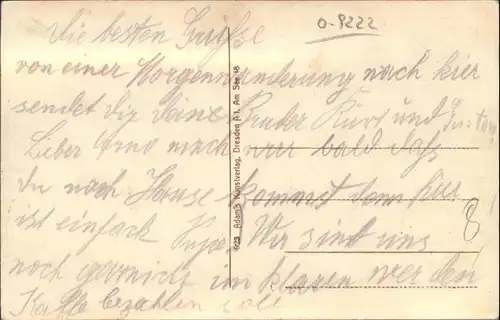 O-9222
Die besten Grüsse
von einer Morgenwanderung nach hier
sendet dir deine Bruder Kurt und
Lieber Arno mach nur bald dass
du nach Hause kommst denn hier
ist einfach Wir sind uns
noch garnicht im klaren wer den
Kaffe bezahlen soll
8
923 Adam's Kunstverlag, Dresden A.1, Am See 18